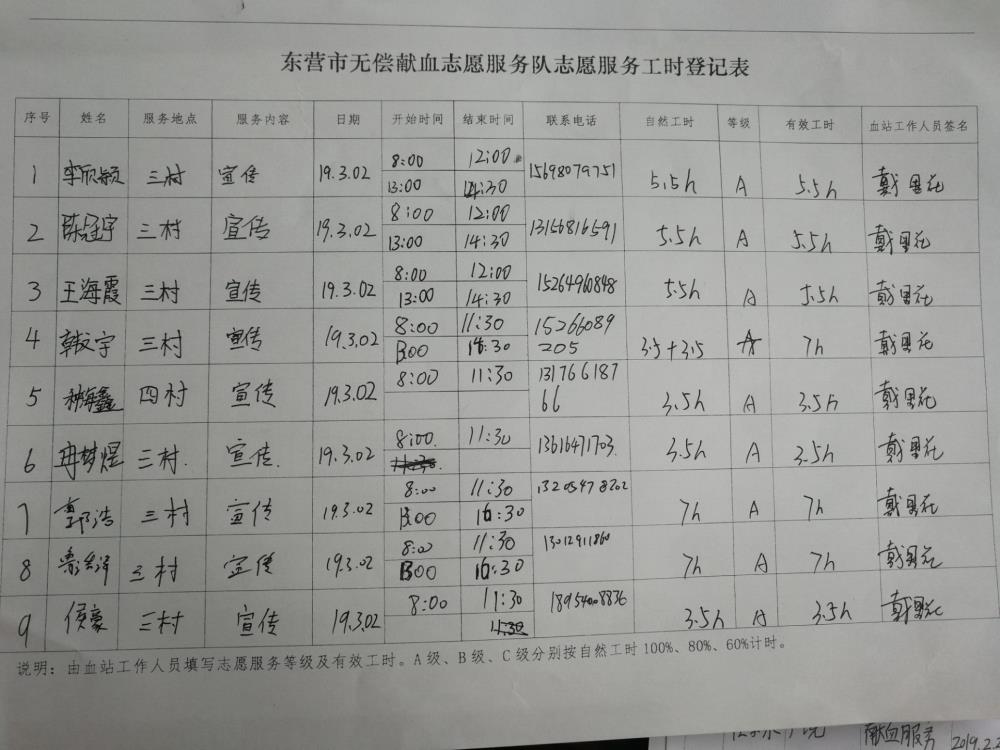 东营市无偿献血志愿服务队志愿服务工时登记表
序号 姓名 服务地点 服务内容 日期 开始时间 结束时间 联系电话 自然工时 等级 有效工时 血站工作人员签名
1 李欣颖 三村 宣传 19.3.02 8:00 12:00 15698079751 5.5h A 5.5h
13:00 14:30
2 陈冠宇 三村 宣传 19.3.02 8:00 12:00 13156816591 5.5h A 5.5h
13:00 14:30
3 王海霞 三村 宣传 19.3.02 8:00 12:00 15264960848 5.5h A 5.5h
13:00 14:30
4 韩文宇 三村 宣传 19.3.02 8:00 11:30 15266089 3.5+3.5 A 7h
13:00 16:30 205
5 四村 宣传 19.3.02 8:00 11:30 131766187 3.5h A 3.5h
66
6 冉梦煜 三村. 宣传. 19.3.02 8:00. 11:30 13616471703. 3.5h A 3.5h
7 郭浩 三村 宣传 19.3.02 8:00 11:30 13205478202 7h A 7h
13:00 16:30
8 三村 宣传 19.3.02 8:00 11:30 13012911860 7h A 7h
13:00 16:30
9 侯豪 三村 宣传 19.3.02 8:00 11:30 18954008836 3.5h A 3.5h
说明：由血站工作人员填写志愿服务等级及有效工时。A 级、B 级、C 级分别按自然工时 100%、80%、60%计时。
献血服务